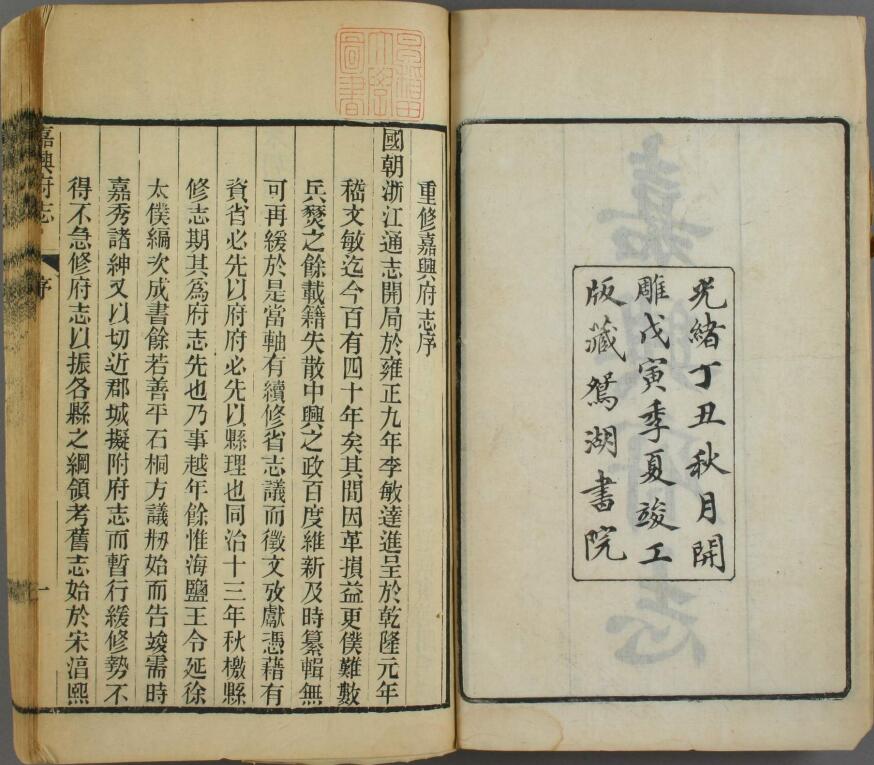 光緒丁丑秋月開
雕戊寅季夏竣工
版藏鴛湖書院
嘉興府志
重修嘉興府志序
國朝浙江通志開局於雍正九年李敏達進呈於乾隆元年
嵇文敏迄今百有四十年矣其間因革損益更僕難數
兵燹之餘載籍失散中興之政百度維新及時纂輯無
可再緩於是當軸有續修省志議而徵文攷獻憑藉有
資省必先以府府必先以縣理也同治十三年秋檄縣
修志期其爲府志先也乃事越年餘惟海鹽王令延徐
太僕編次成書餘若善平石桐方議刱始而告竣需時
嘉秀諸紳又以切近郡城擬附府志而暫行緩修勢不
得不急修府志以振各縣之綱領考舊志始於宋淳熙
嘉興府志
序
一
大學
圖書